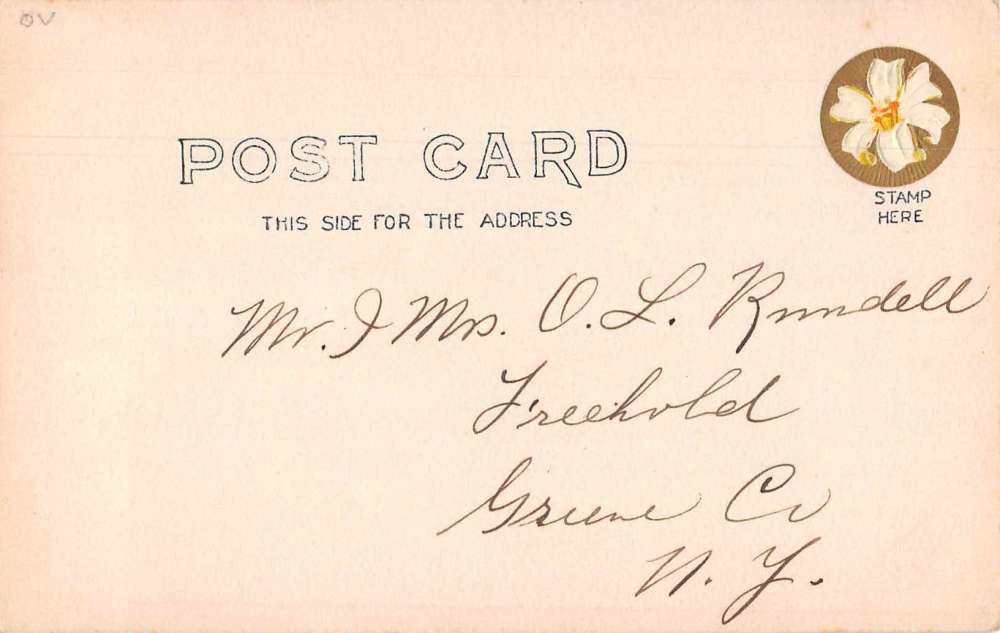 OV
POST CARD
THIS SIDE FOR THE ADDRESS
STAMP
HERE
Mr. & Mrs. O. L. Rundell
Freehold
Greene Co
N. Y.